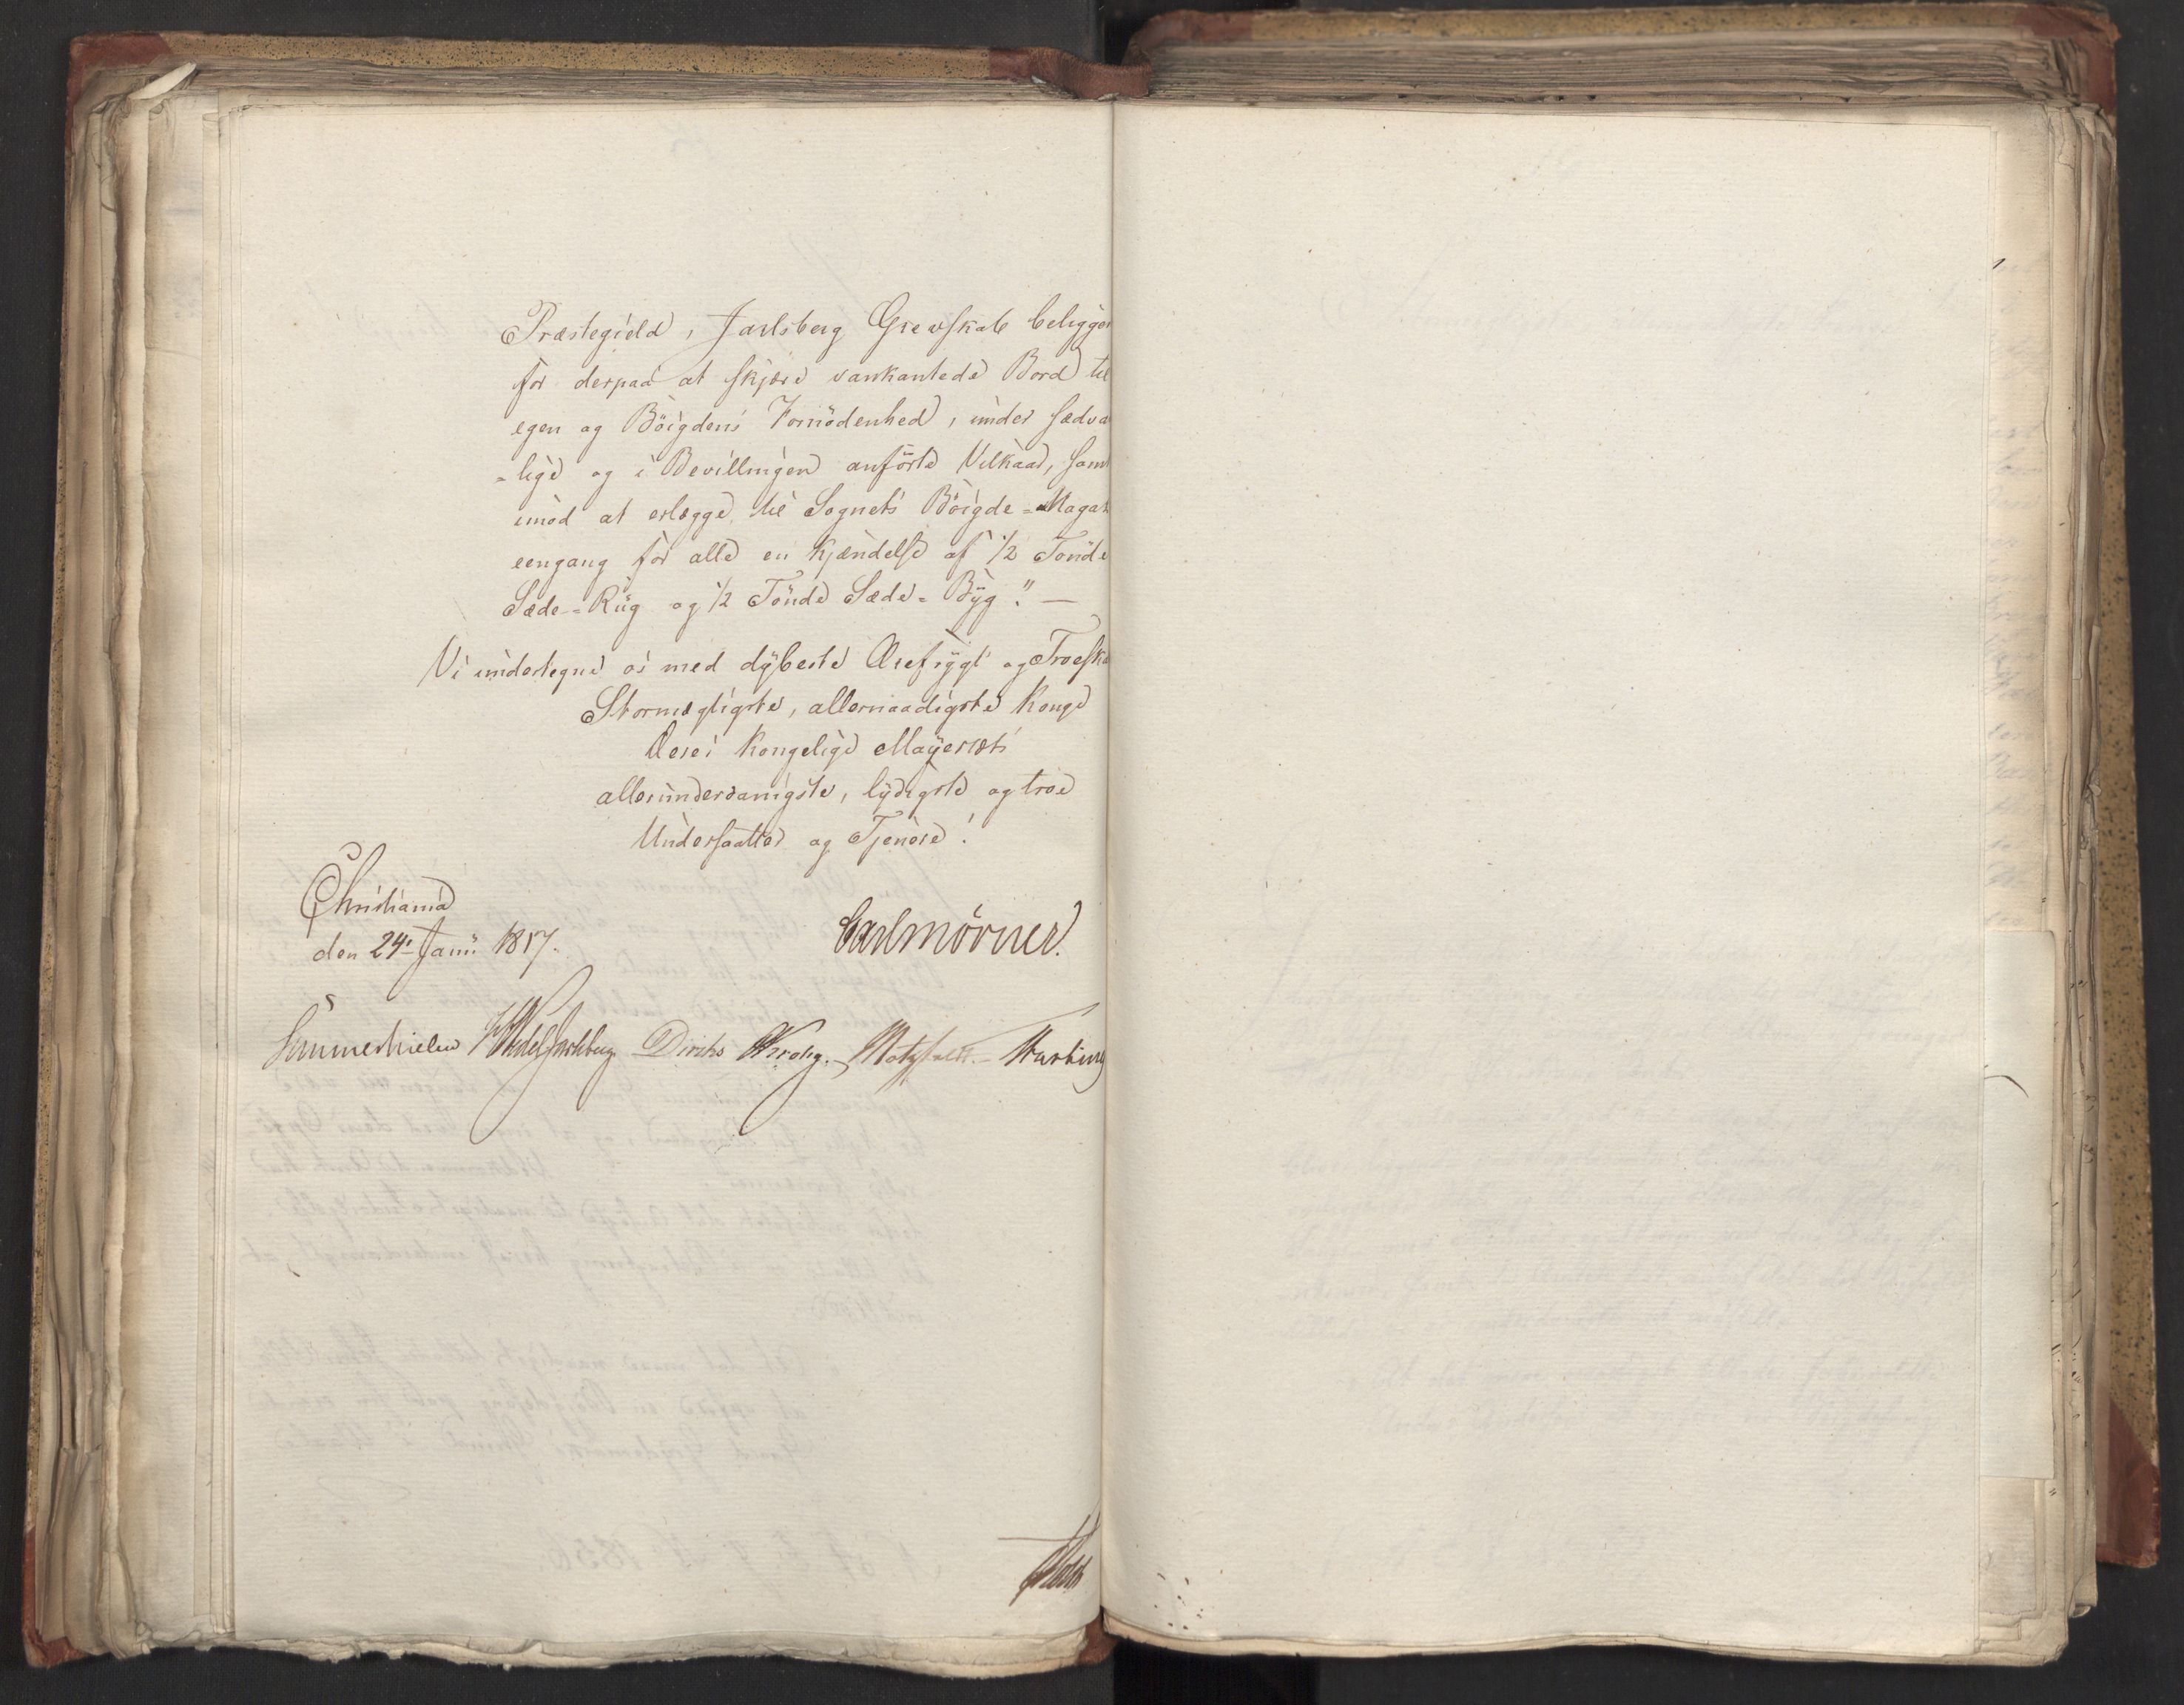 Præstegield, Jarlsberg Grevskab beligge
for derpaa at skjære vankantede Bord til
egen og Böigdens Fornödenhed, under sædva
-lige og i Bevillingen anförte Vilkaar, samt
imod at erlægge til Sognets Böigde-Magaz
eengang for alle en Kjændelse af 1/2 Tönde
Sæde-Rüg og 1/2 Tönde Sæde-Byg." —
Vi undertegne os med dybeste Ærefrygt og Troska
Stormægtigste, allernaadigste Konge
Deres Kongelige Mayestæts
allerunderdanigste, lydigste og troe
Undersaatter og Tjenere!
Christiania
den 24de Janu 1817.
Carl Mörner.
Sommerhielm Wedel Jarlsberg Diriks Krohg. Motzfeldt. —